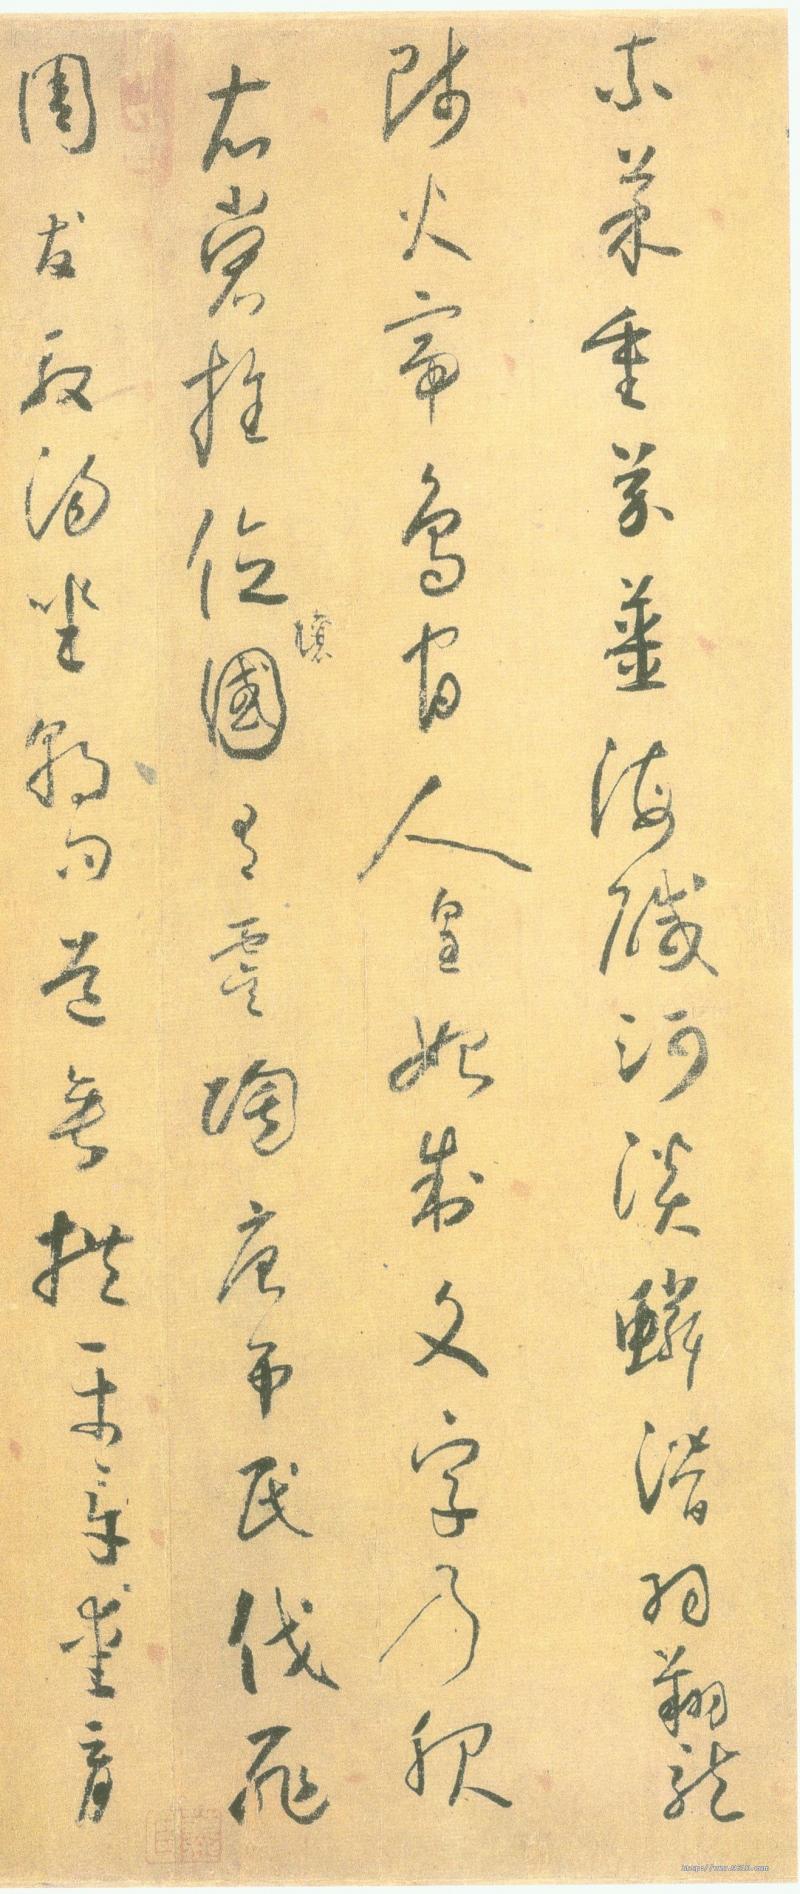 柰菜重芥薑海鹹河淡鱗潛羽翔龍
師火帝鳥官人皇始制文字乃服
衣裳推位國讓有虞陶唐弔民伐罪
周發殷湯坐朝問道垂拱平章愛育